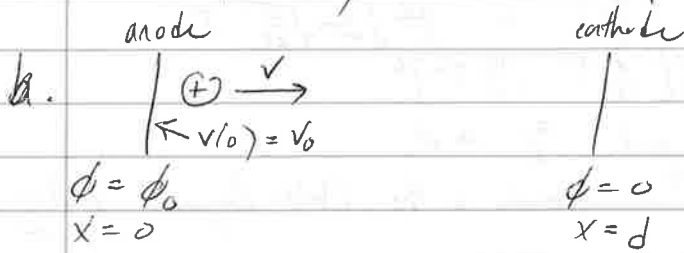 anode cathode
b. ⊕ v
v(0) = v₀
ϕ = ϕ₀ ϕ = 0
x = 0 x = d